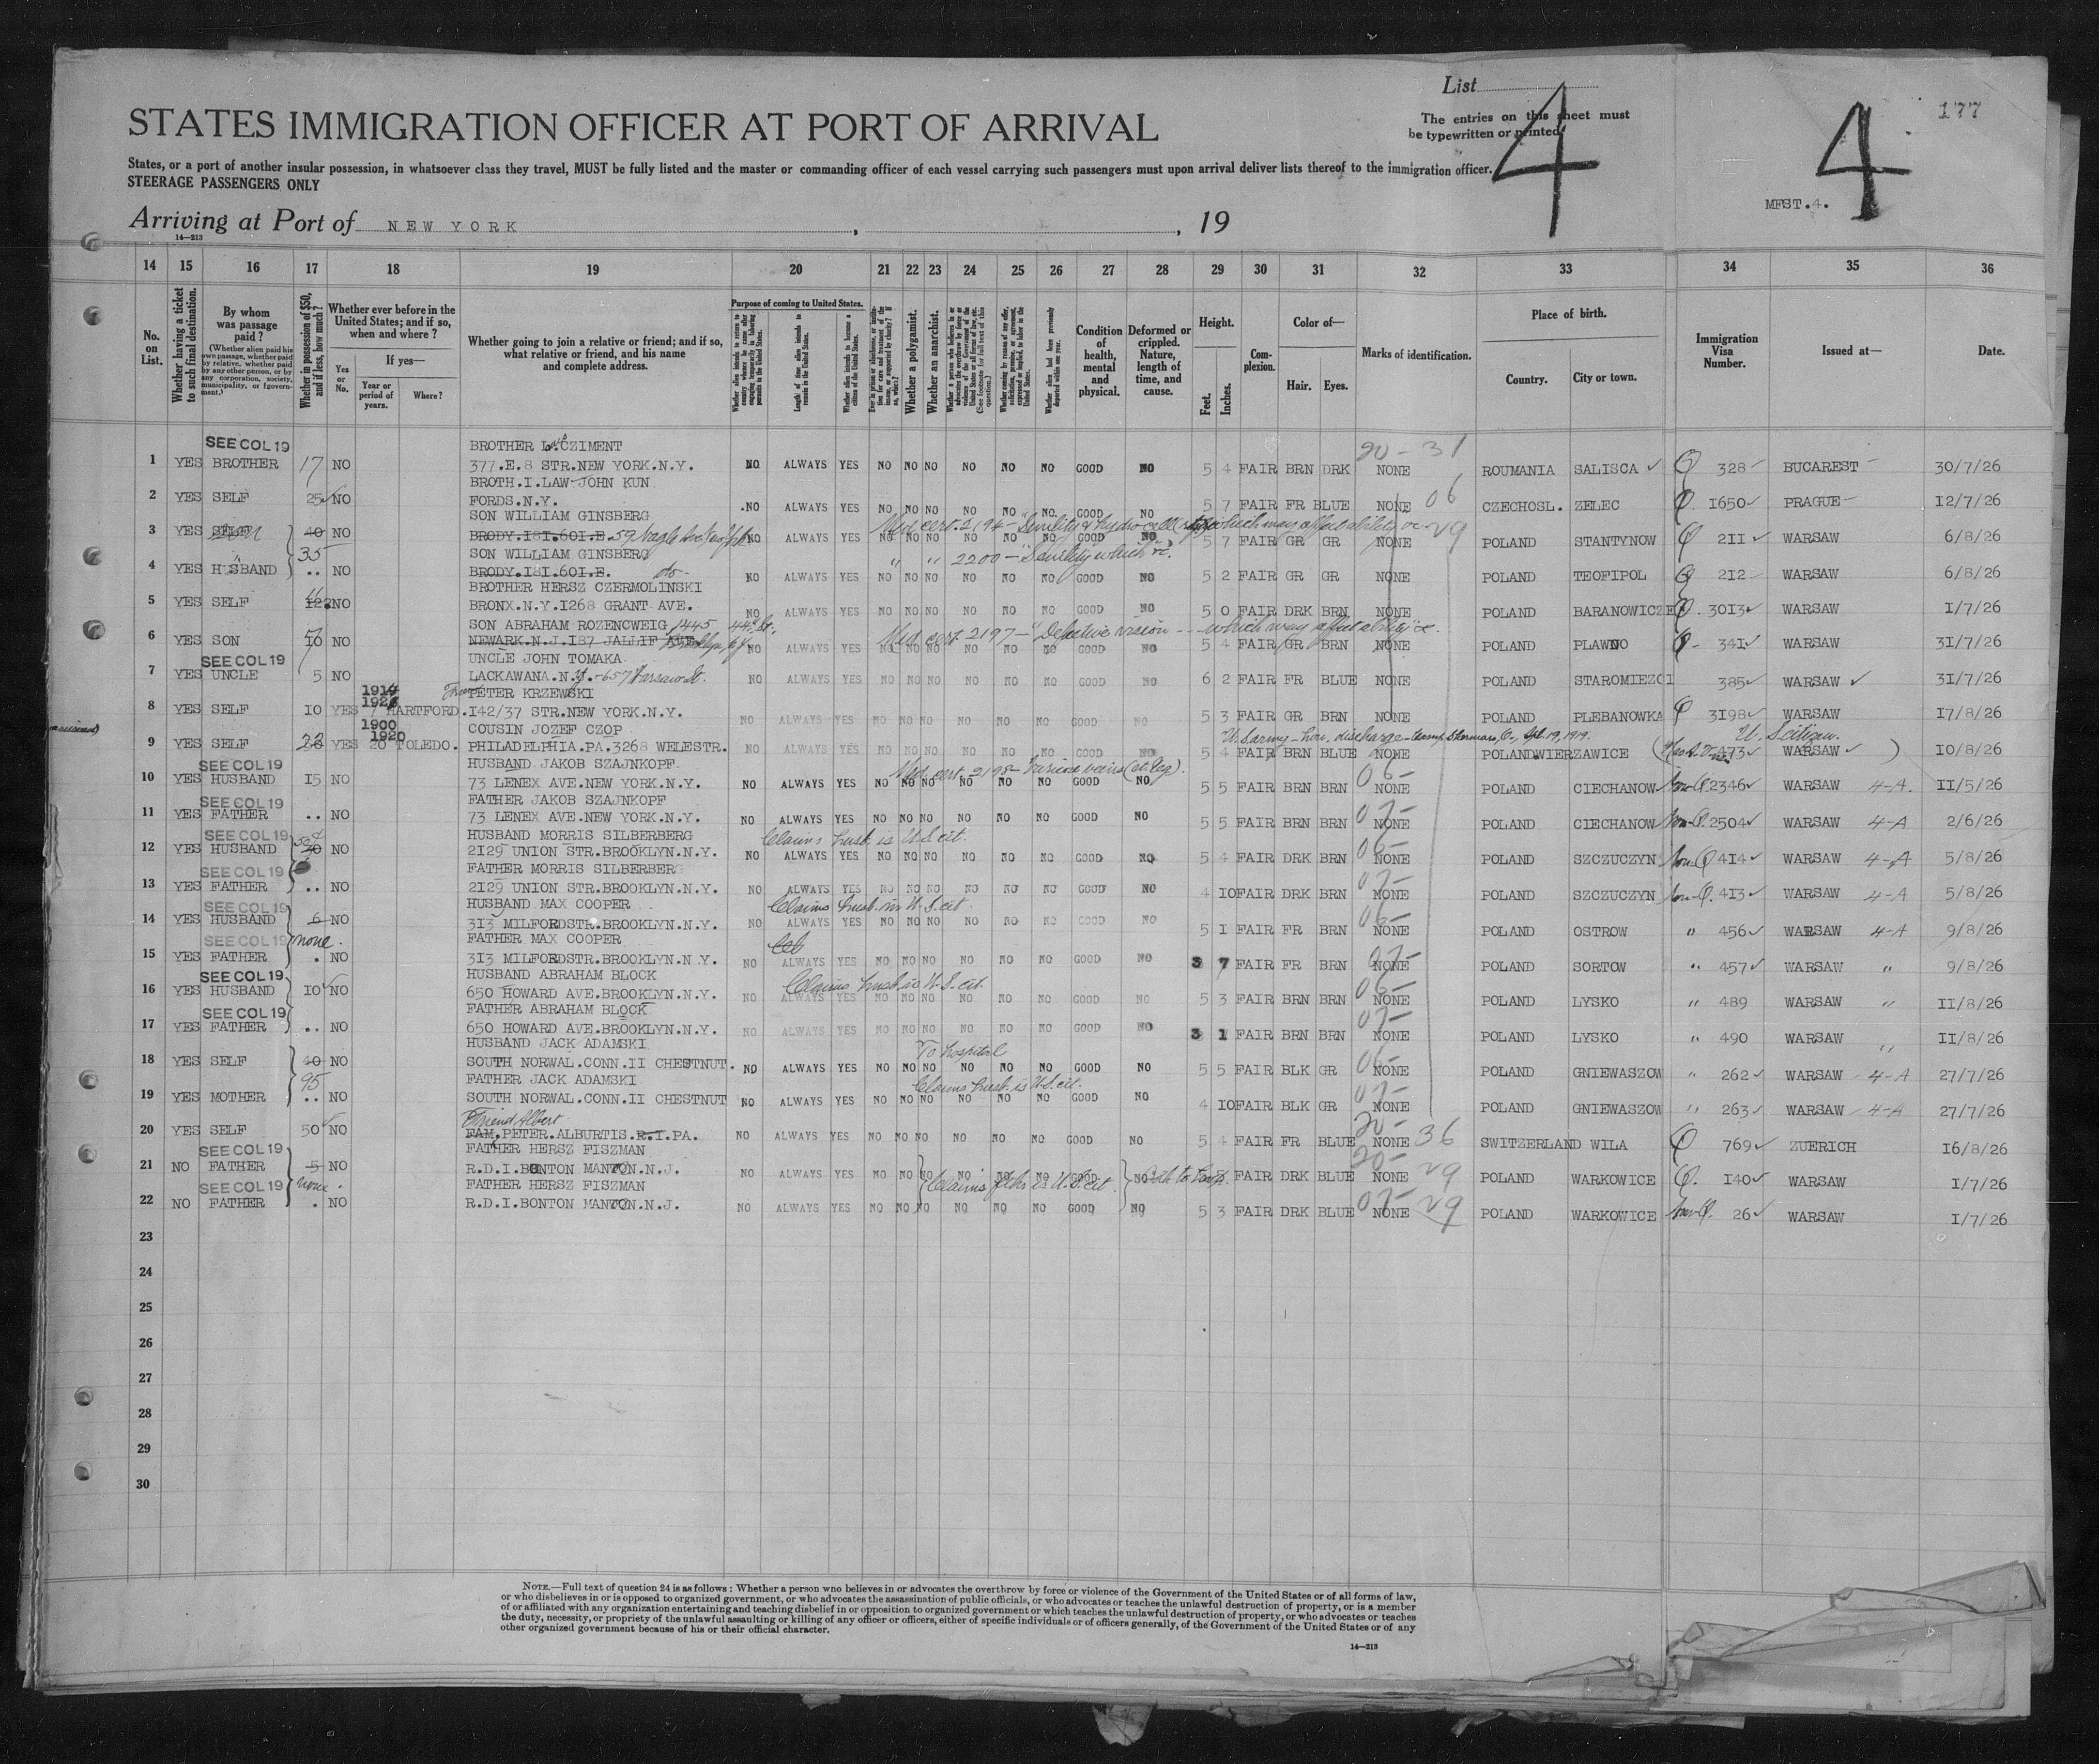 List
The entries on this sheet must
be typewritten or printed
4
4
177
STATES IMMIGRATION OFFICER AT PORT OF ARRIVAL
States, or a port of another insular possession, in whatsoever class they travel, MUST be fully listed and the master or commanding officer of each vessel carrying such passengers must upon arrival deliver lists thereof to the immigration officer.
STEERAGE PASSENGERS ONLY
MFST.4.
Arriving at Port of NEW YORK, , 19
14—213
14 15 16 17 18 19 20 21 22 23 24 25 26 27 28 29 30 31 32 33 34 35 36
No. on List.
Whether having a ticket to such final destination.
By whom was passage paid?
(Whether alien paid his own passage, whether paid by relative, whether paid by any other person, or by any corporation, society, municipality, or government.)
Whether in possession of $50, and if less, how much?
Whether ever before in the United States; and if so, when and where?
Yes or No.
If yes—
Year or period of years.
Where?
Whether going to join a relative or friend; and if so, what relative or friend, and his name and complete address.
Purpose of coming to United States.
Length of time alien intends to remain in the United States.
Whether alien intends to become a citizen of the United States.
Whether a polygamist.
Whether an anarchist.
Condition of health, mental and physical.
Deformed or crippled. Nature, length of time, and cause.
Height.
Feet. Inches.
Complexion.
Color of—
Hair. Eyes.
Marks of identification.
Place of birth.
Country. City or town.
Immigration Visa Number.
Issued at—
Date.
SEE COL 19 BROTHER CZIMENT 20- 31
1 YES BROTHER 17 NO 377.E.8 STR.NEW YORK.N.Y. NO ALWAYS YES NO NO NO NO NO NO GOOD NO 5 4 FAIR BRN DRK NONE ROUMANIA SALISCA 328 BUCAREST 30/7/26
BROTH.I.LAW JOHN KUN
2 YES SELF 25 NO FORDS.N.Y. NO ALWAYS YES NO NO NO NO NO NO GOOD NO 5 7 FAIR FR BLUE NONE 06 CZECHOSL. ZELEC 1650 PRAGUE 12/7/26
SON WILLIAM GINSBERG Med cert. 2194 - "Senility & hydrocele which may affect ability" 29
3 YES SELF 40 NO BRODY.181.601.E. 59 Nagle Ave. NO ALWAYS YES NO NO NO NO NO NO GOOD NO 5 7 FAIR GR GR NONE POLAND STANTYNOW 211 WARSAW 6/8/26
35 SON WILLIAM GINSBERG " " 2200 - "Senility" which
4 YES HUSBAND .. NO BRODY.181.601.E. do- NO ALWAYS YES NO NO NO NO NO NO GOOD NO 5 2 FAIR GR GR NONE POLAND TEOFIPOL 212 WARSAW 6/8/26
BROTHER HERSZ CZERMOLINSKI
5 YES SELF NO BRONX.N.Y.1268 GRANT AVE. NO ALWAYS YES NO NO NO NO NO NO GOOD NO 5 0 FAIR DRK BRN NONE POLAND BARANOWICZE 3013 WARSAW 1/7/26
SON ABRAHAM ROZENCWEIG 1445 44th St. Med cert 2197 - "Defective vision - which may affect ability"
6 YES SON 10 NO NEWARK.N.J.187 JALLIF AVE. Brooklyn, N.Y. NO ALWAYS YES NO NO NO NO NO NO GOOD NO 5 4 FAIR GR BRN NONE POLAND PLAWNO 341 WARSAW 31/7/26
SEE COL 19 UNCLE JOHN TOMAKA
7 YES UNCLE 5 NO LACKAWANA.N.Y.-657 Warsaw St. NO ALWAYS YES NO NO NO NO NO NO GOOD NO 6 2 FAIR FR BLUE NONE POLAND STAROMIEZCI 385 WARSAW 31/7/26
1914 PETER KRZEWSKI
8 YES SELF 10 YES 1921 HARTFORD. 142/37 STR.NEW YORK.N.Y. NO ALWAYS YES NO NO NO NO NO NO GOOD NO 5 3 FAIR GR BRN NONE POLAND PLEBANOWKA 3198 WARSAW 17/8/26
1900 COUSIN JOZEF CZOP U.S. army - hon. discharge - Camp Sherman, O., Sept. 19, 1919. U.S. citizen.
9 YES SELF YES 1920 20 TOLEDO. PHILADELPHIA.PA.3268 WELESTR. NO ALWAYS YES NO NO NO NO NO NO GOOD NO 5 4 FAIR BRN BLUE NONE POLAND WIERZAWICE 473 WARSAW 10/8/26
SEE COL 19 HUSBAND JAKOB SZAJNKOPF Med. cert 2198 - Varicose veins (of leg).
10 YES HUSBAND 15 NO 73 LENEX AVE.NEW YORK.N.Y. NO ALWAYS YES NO NO NO NO NO NO GOOD NO 5 5 FAIR BRN BRN 06- NONE POLAND CIECHANOW Non-Q. 2346 WARSAW 4-A. 11/5/26
SEE COL 19 FATHER JAKOB SZAJNKOPF
11 YES FATHER .. NO 73 LENEX AVE.NEW YORK.N.Y. NO ALWAYS YES NO NO NO NO NO NO GOOD NO 5 5 FAIR BRN BRN 07- NONE POLAND CIECHANOW Non-Q. 2504 WARSAW 4-A 2/6/26
SEE COL 19 HUSBAND MORRIS SILBERBERG Claims husb. is U.S. cit.
12 YES HUSBAND NO 2129 UNION STR.BROOKLYN.N.Y. NO ALWAYS YES NO NO NO NO NO NO GOOD NO 5 4 FAIR DRK BRN 06- NONE POLAND SZCZUCZYN Non-Q. 414 WARSAW 4-A 5/8/26
SEE COL 19 FATHER MORRIS SILBERBERG
13 YES FATHER .. NO 2129 UNION STR.BROOKLYN.N.Y. NO ALWAYS YES NO NO NO NO NO NO GOOD NO 4 10 FAIR DRK BRN 07- NONE POLAND SZCZUCZYN Non-Q. 413 WARSAW 4-A 5/8/26
SEE COL 19 HUSBAND MAX COOPER Claims husb. is U.S. cit.
14 YES HUSBAND 6 NO 313 MILFORDSTR.BROOKLYN.N.Y. NO ALWAYS YES NO NO NO NO NO NO GOOD NO 5 1 FAIR FR BRN 06- NONE POLAND OSTROW " 456 WARSAW 4-A 9/8/26
SEE COL 19 none. FATHER MAX COOPER
15 YES FATHER . NO 313 MILFORDSTR.BROOKLYN.N.Y. NO ALWAYS YES NO NO NO NO NO NO GOOD NO 3 7 FAIR FR BRN 07- NONE POLAND SORTOW " 457 WARSAW " 9/8/26
SEE COL 19 HUSBAND ABRAHAM BLOCK Claims husb. is U.S. cit.
16 YES HUSBAND 10 NO 650 HOWARD AVE.BROOKLYN.N.Y. NO ALWAYS YES NO NO NO NO NO NO GOOD NO 5 3 FAIR BRN BRN 06- NONE POLAND LYSKO " 489 WARSAW " 11/8/26
SEE COL 19 FATHER ABRAHAM BLOCK
17 YES FATHER .. NO 650 HOWARD AVE.BROOKLYN.N.Y. NO ALWAYS YES NO NO NO NO NO NO GOOD NO 3 1 FAIR BRN BRN 07- NONE POLAND LYSKO " 490 WARSAW " 11/8/26
HUSBAND JACK ADAMSKI To hospital
18 YES SELF 40 NO SOUTH NORWAL.CONN.II CHESTNUT. NO ALWAYS YES NO NO NO NO NO NO GOOD NO 5 5 FAIR BLK GR 06- NONE POLAND GNIEWASZOW " 262 WARSAW 4-A 27/7/26
95 FATHER JACK ADAMSKI Claims husb. is U.S. cit.
19 YES MOTHER .. NO SOUTH NORWAL.CONN.II CHESTNUT NO ALWAYS YES NO NO NO NO NO NO GOOD NO 4 10 FAIR BLK GR 07- NONE POLAND GNIEWASZOW " 263 WARSAW 4-A 27/7/26
Friend Albert
20 YES SELF 50 NO FAM. PETER.ALBURTIS.R.I.PA. NO ALWAYS YES NO NO NO NO NO NO GOOD NO 5 4 FAIR FR BLUE 20- NONE 36 SWITZERLAND WILA 769 ZUERICH 16/8/26
SEE COL 19 FATHER HERSZ FISZMAN
21 NO FATHER 5 NO R.D.I.BONTON MANTON.N.J. NO ALWAYS YES NO NO NO NO NO NO GOOD NO FAIR DRK BLUE 20- NONE 29 POLAND WARKOWICE 140 WARSAW 1/7/26
SEE COL 19 none. FATHER HERSZ FISZMAN Claims fthr is U.S. cit.
22 NO FATHER . NO R.D.I.BONTON MANTON.N.J. NO ALWAYS YES NO NO NO NO NO NO GOOD NO 5 3 FAIR DRK BLUE 07- NONE 29 POLAND WARKOWICE Non-Q. 26 WARSAW 1/7/26
23
24
25
26
27
28
29
30
NOTE.—Full text of question 24 is as follows: Whether a person who believes in or advocates the overthrow by force or violence of the Government of the United States or of all forms of law,
or who disbelieves in or is opposed to organized government, or who advocates the assassination of public officials, or who advocates or teaches the unlawful destruction of property, or is a member
of or affiliated with any organization entertaining and teaching disbelief in or opposition to organized government or which teaches the unlawful destruction of property, or who advocates or teaches
the duty, necessity, or propriety of the unlawful assaulting or killing of any officer or officers, either of specific individuals or of officers generally, of the Government of the United States or of any
other organized government because of his or their official character.
14—213